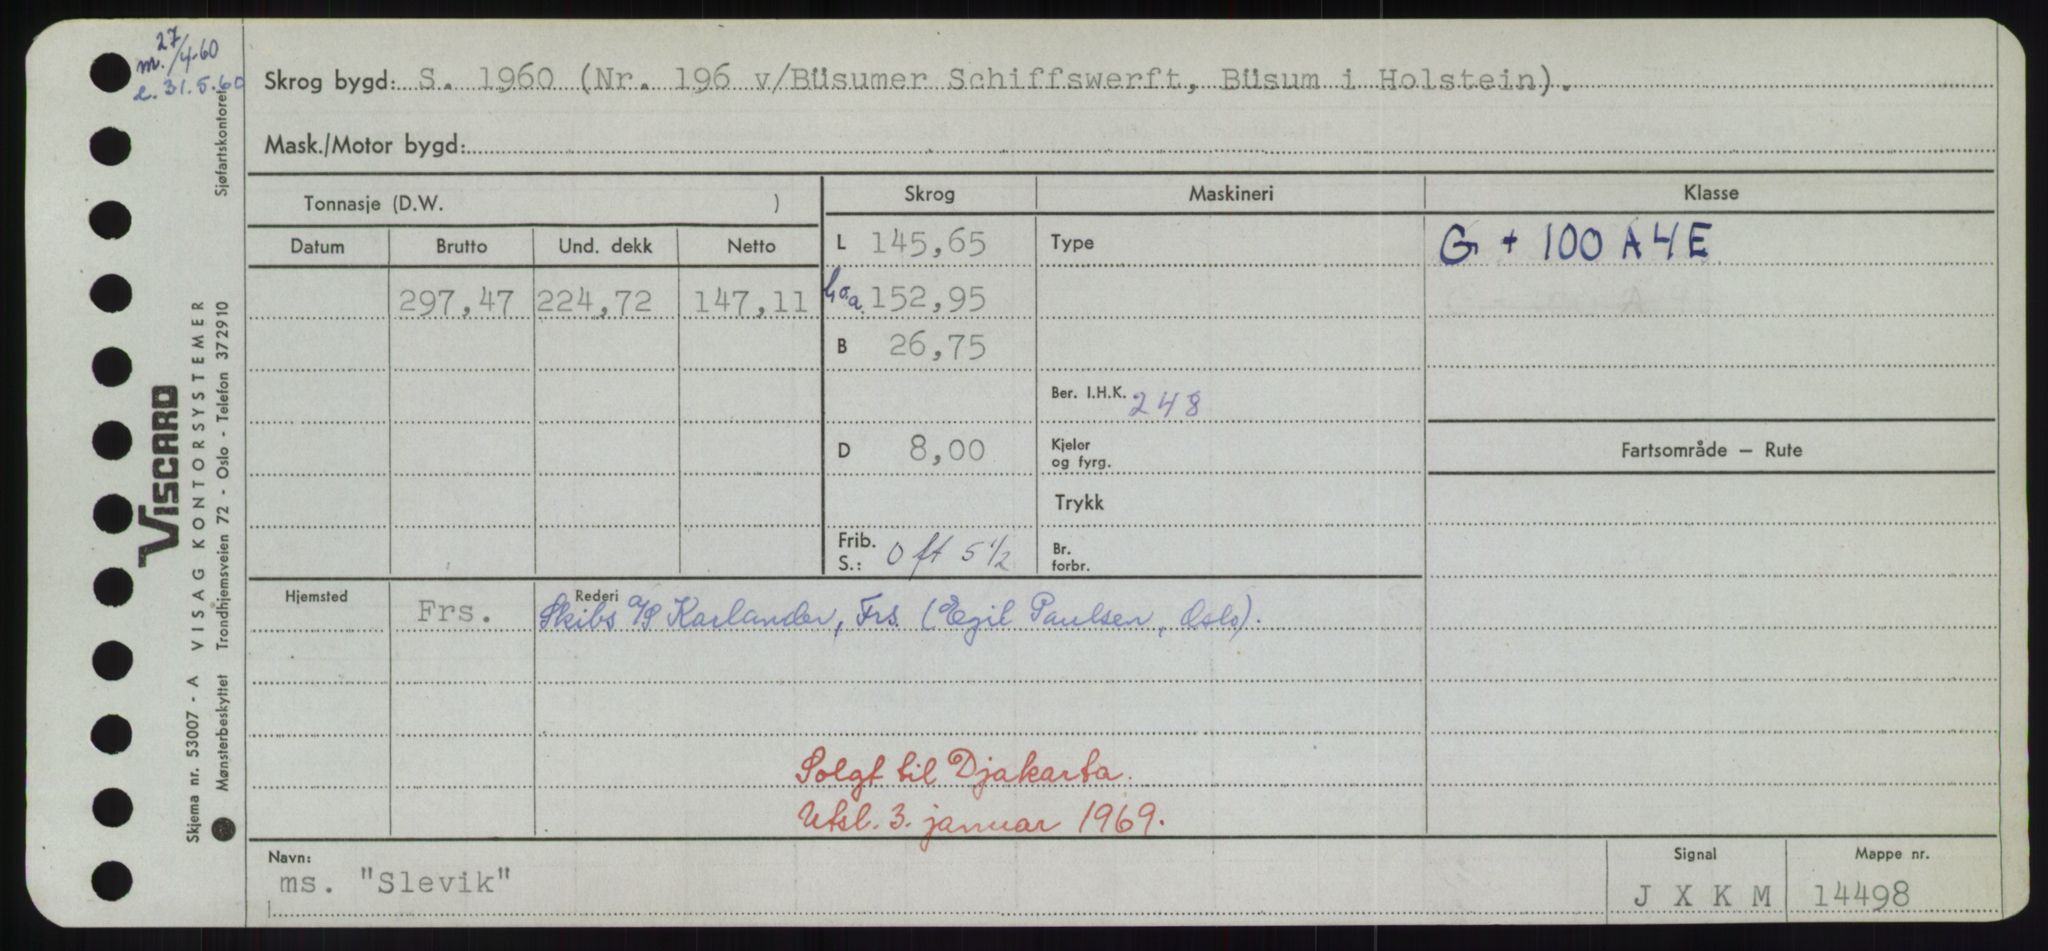 m. 27/4-60
e. 31.5.60
Skrog bygd: S. 1960 (Nr. 196 v/Büsumer Schiffswerft, Büsum i Holstein).
Mask./Motor bygd:
Tonnasje (D.W. )
Skrog Maskineri Klasse
Datum Brutto Und. dekk Netto
L 145,65 Type G + 100 A 4 E
297,47 224,72 147,11 L o.a. 152,95
B 26,75
Ber. I.H.K. 248
D 8,00 Kjeler og fyrg. Fartsområde – Rute
Trykk
Frib. S.: 0 ft 5 1/2 Br. forbr.
Hjemsted Frs. Rederi Skibs A/S Karlander, Frs. (Egil Paulsen, Oslo).
Solgt til Djakarta.
Utsl. 3. januar 1969.
Navn: ms. "Slevik"
Signal J X K M
Mappe nr. 14498
VISCARD
Skjema nr. 53007 - A VISAG KONTORSYSTEMER
Mønsterbeskyttet Trondhjemsveien 72 - Oslo - Telefon 372910 Sjøfartskontoret